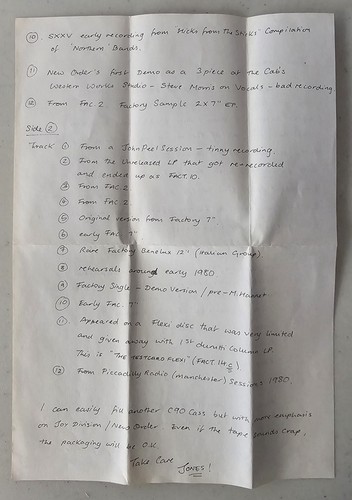 ⑩ SXXV early recording from Hicks from the Sticks' Compilation
of 'Northern' Bands.
⑪ New Order's first Demo as a 3 piece at the Cab's
Western Works Studio - Steve Morris on Vocals - bad recording
⑫ From FAC. 2 Factory Sample 2 x 7" EP.
Side ②
Track ① From a John Peel Session - tinny recording
② From the Unreleased LP that got re-recorded
and ended up as FACT. 10.
③ From FAC. 2
④ From FAC. 2
⑤ Original version from Factory 7"
⑥ early FAC 7"
⑦ Rare Factory Benelux 12" (Italian Group)
⑧ rehearsals around early 1980
⑨ Factory Single - Demo Version / pre - M. Hannet
⑩ Early FAC. 7"
⑪ Appeared on a Flexi disc that was very limited
and given away with 1st Durutti Column LP.
This is "THE TESTCARD FLEXI" (FACT. 14 c)
⑫ From Piccadilly Radio (Manchester) Sessions 1980.
I can easily fill another C90 Cass but with more emphasis
on Joy Division / New Order. Even if the tape sounds crap,
the packaging will be O.K.
Take Care
JONES!